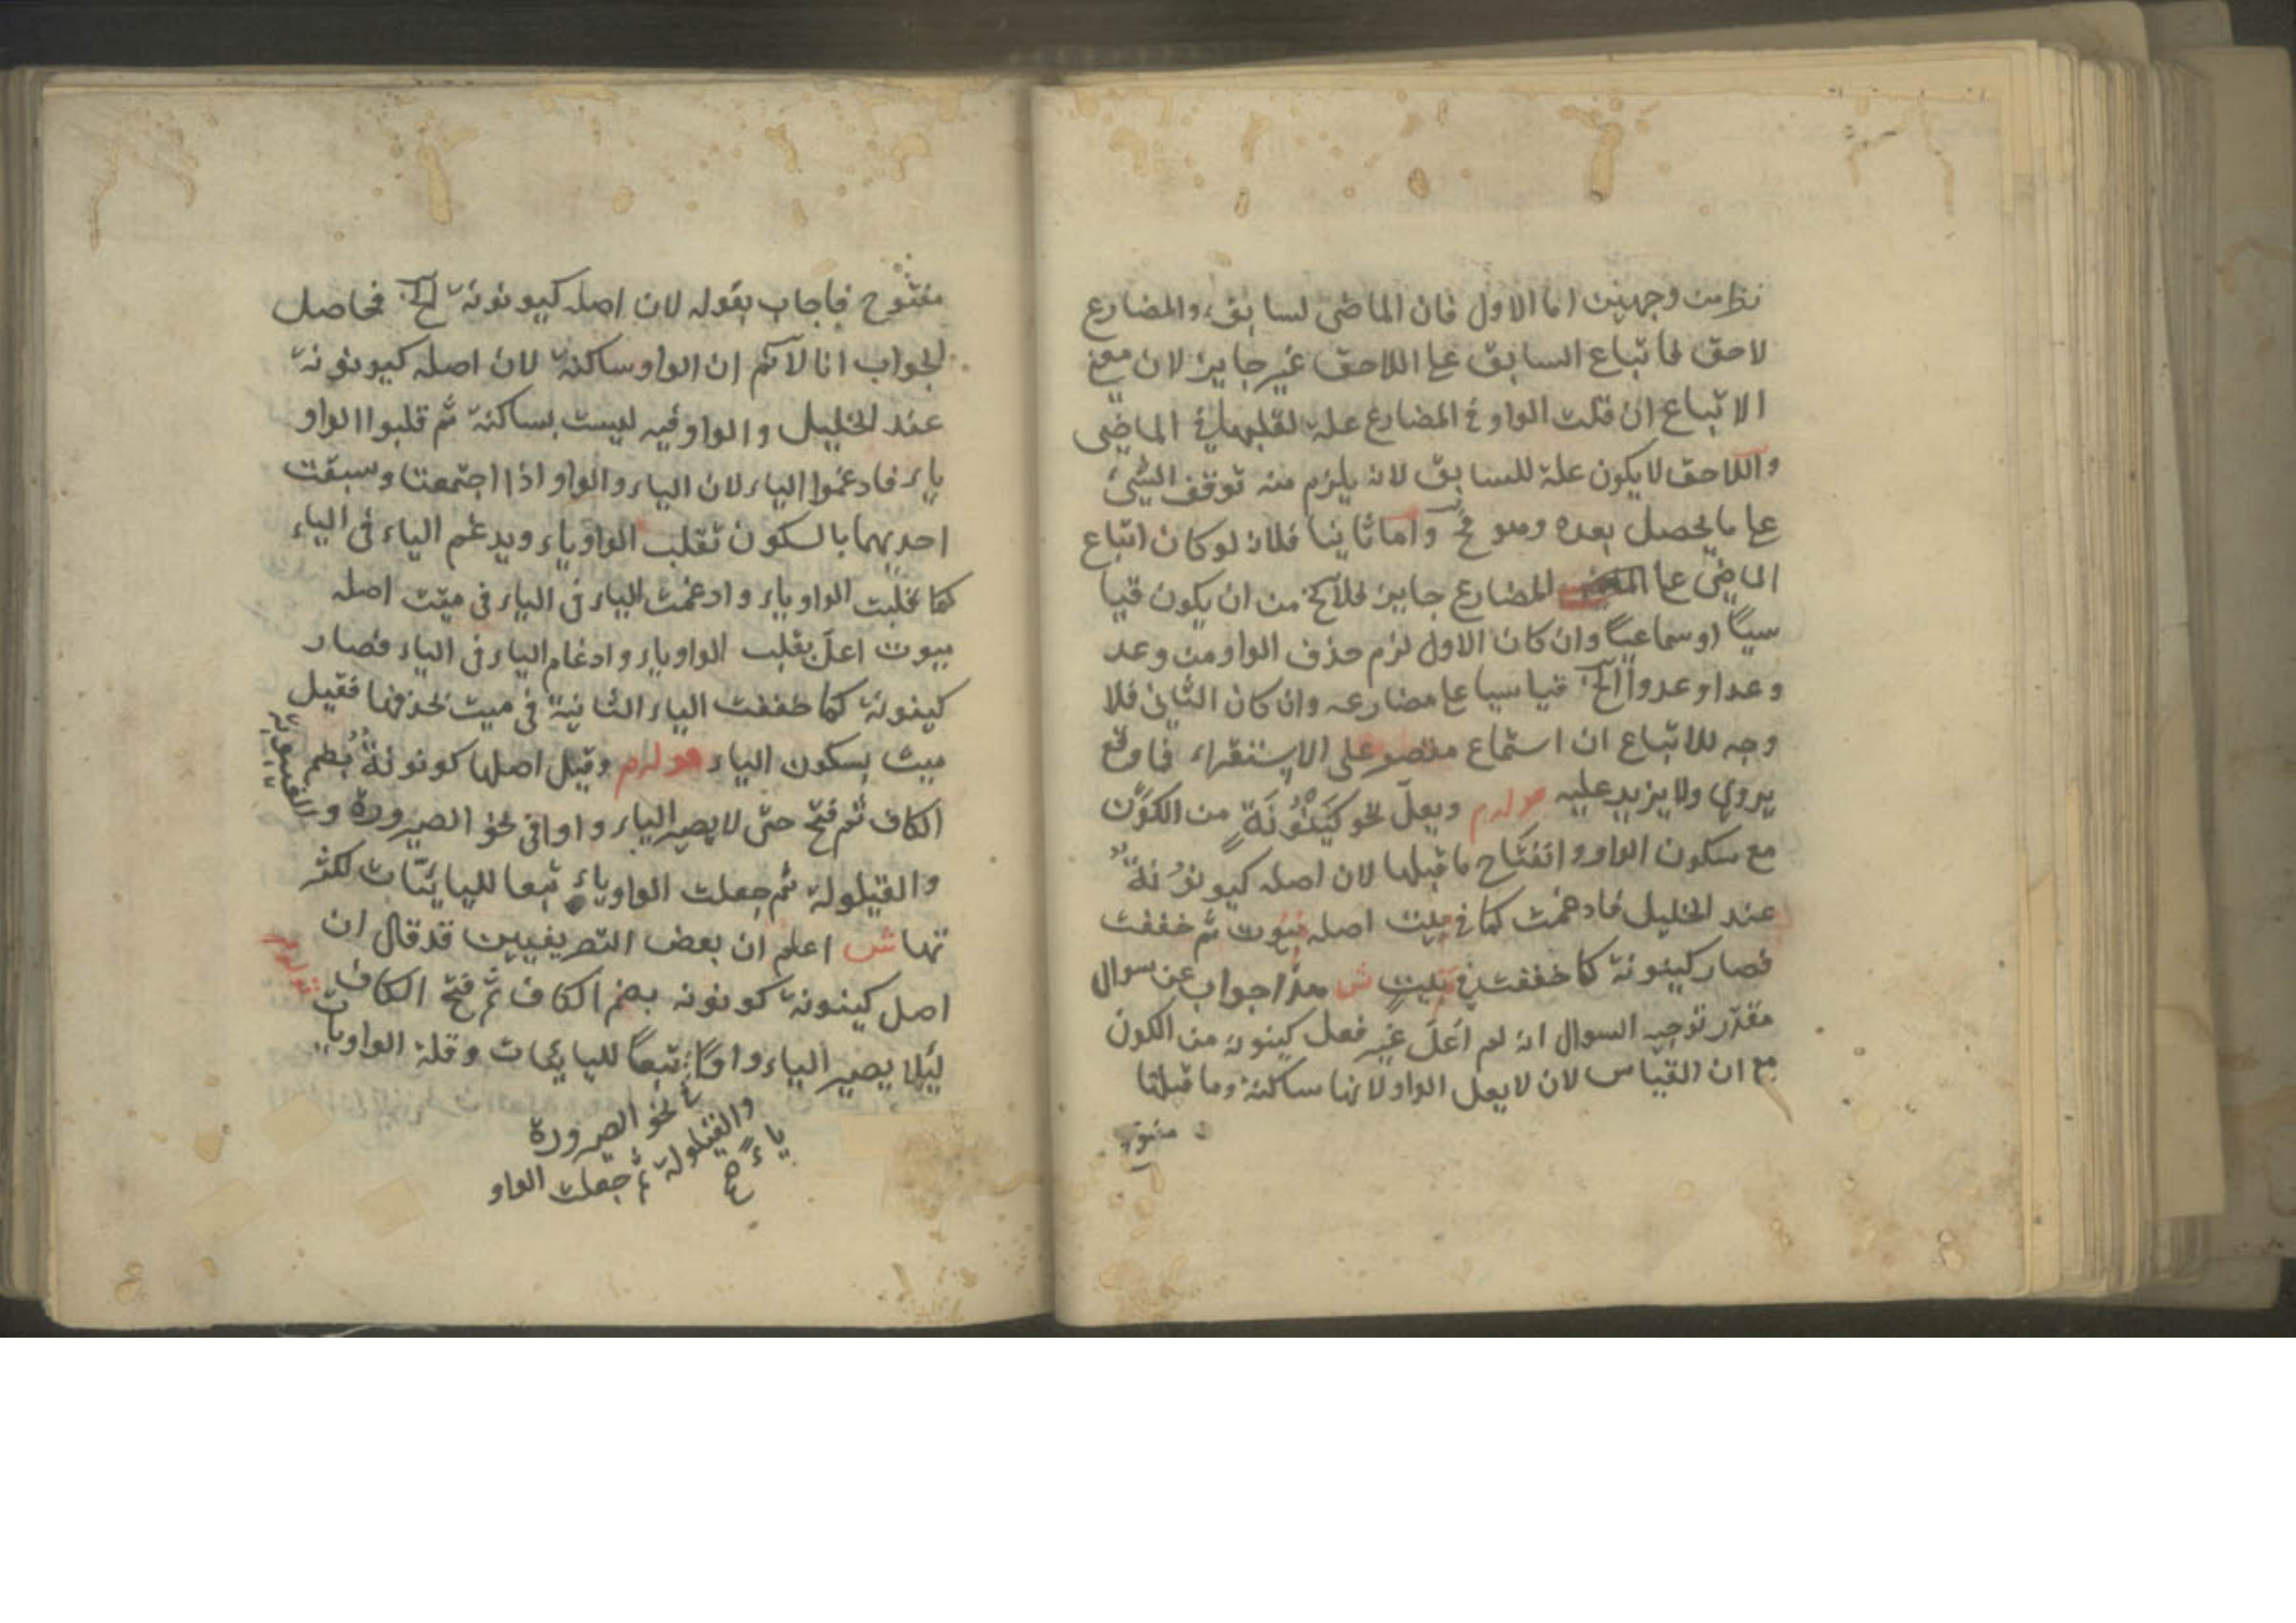 نظر من وجهين اما الاول فان الماضى لسابق والمضارع
لاحق فاتباع السابق عا اللاحق غير جايز لان معنى
الاتباع ان قلت الواو فى المضارع علة لقلبها فى الماضى
واللاحق لا يكون علة للسابق لانه يلزم منه توقف الشئ
عا ما يحصل بعده وهو مح واما ثانيا فلانه لو كان اتباع
الماضى عا المضارع جايز فلا يخ من ان يكون قيا
سيا او سماعيا وان كان الاول لزم حذف الواو من وعد
وعدا وعدوا الخ قياسيا عا مضارعه وان كان الثانى فلا
وجه للاتباع ان استماع مقصو على الاستقراء فما وقع
يروي ولا يزيد عليه قوله م ويعل نحو كينونة من الكون
مع سكون الواو وانفتاح ما قبلها لان اصله كيونونة
عند الخليل فادغمت كما فى ميت اصله ميوت ثم خففت
فصار كينونة كما خففت فى ميت ش هذا جواب عن سوال
مقدر توجيه السوال انه لم اعل غير فعل كينونة من الكون
مع ان القياس لان لا يعل الواو لانها ساكنة وما قبلها
مفتوح
مفتوح فاجاب بقوله لان اصله كيونونة الخ فحاصل
الجواب انا لا نم ان الواو ساكنة لان اصله كيونونة
عند الخليل والواو فيه ليست بساكنة ثم قلبوا الواو
ياء فادغموا الياء لان الياء والواو اذا اجتمعتا وسبقت
احديهما بالسكون تقلب الواو ياء ويدغم الياء فى الياء
كما قلبت الواو ياء وادغمت الياء فى الياء فى ميت اصله
ميوت اعل بقلب الواو ياء وادغام الياء فى الياء فصار
كينونة كما خففت الياء الثانية فى ميت بحذفها فقيل
ميت بسكون الياء قوله م وقيل اصلها كونونة بضم
الكاف ثم فتح حتى لا يصير الياء واوا فى نحو الصيرورة و
الغيبوبة
والقيلولة ثم جعلت الواو ياء تبعا لليائيات لكثر
تها ش اعلم ان بعض التصريفيين قد قال ان
اصل كينونة كونونه بضم الكاف ثم فتح الكاف
لئلا يصير الياء واوا تبعا لليائيات وقلة الواويات
فى نحو الصيرورة
والقيلولة ثم جعلت الواو
ياء صح